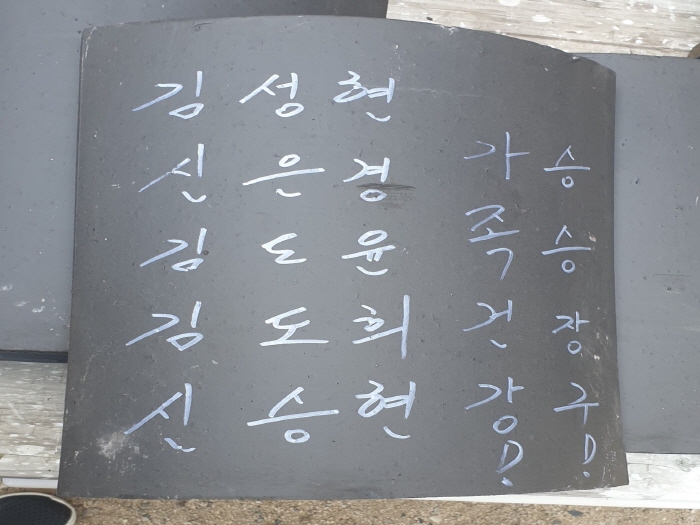 김성현
신은경
김도윤
김도희
신승현
가족건강!
승승장구!